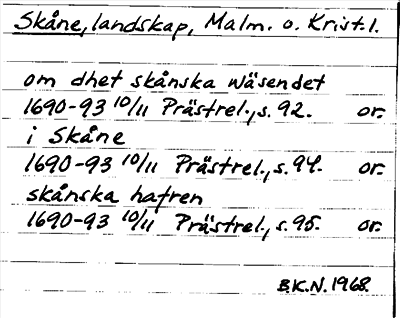 Skåne, landskap, Malm. o. Krist. l.
om dhet skånska wäsendet
1690-93 10/11 Prästrel., s. 92. or.
i Skåne
1690-93 10/11 Prästrel., s. 94. or.
skånska hafren
1690-93 10/11 Prästrel., s. 95. or.
B.K.N. 1968.